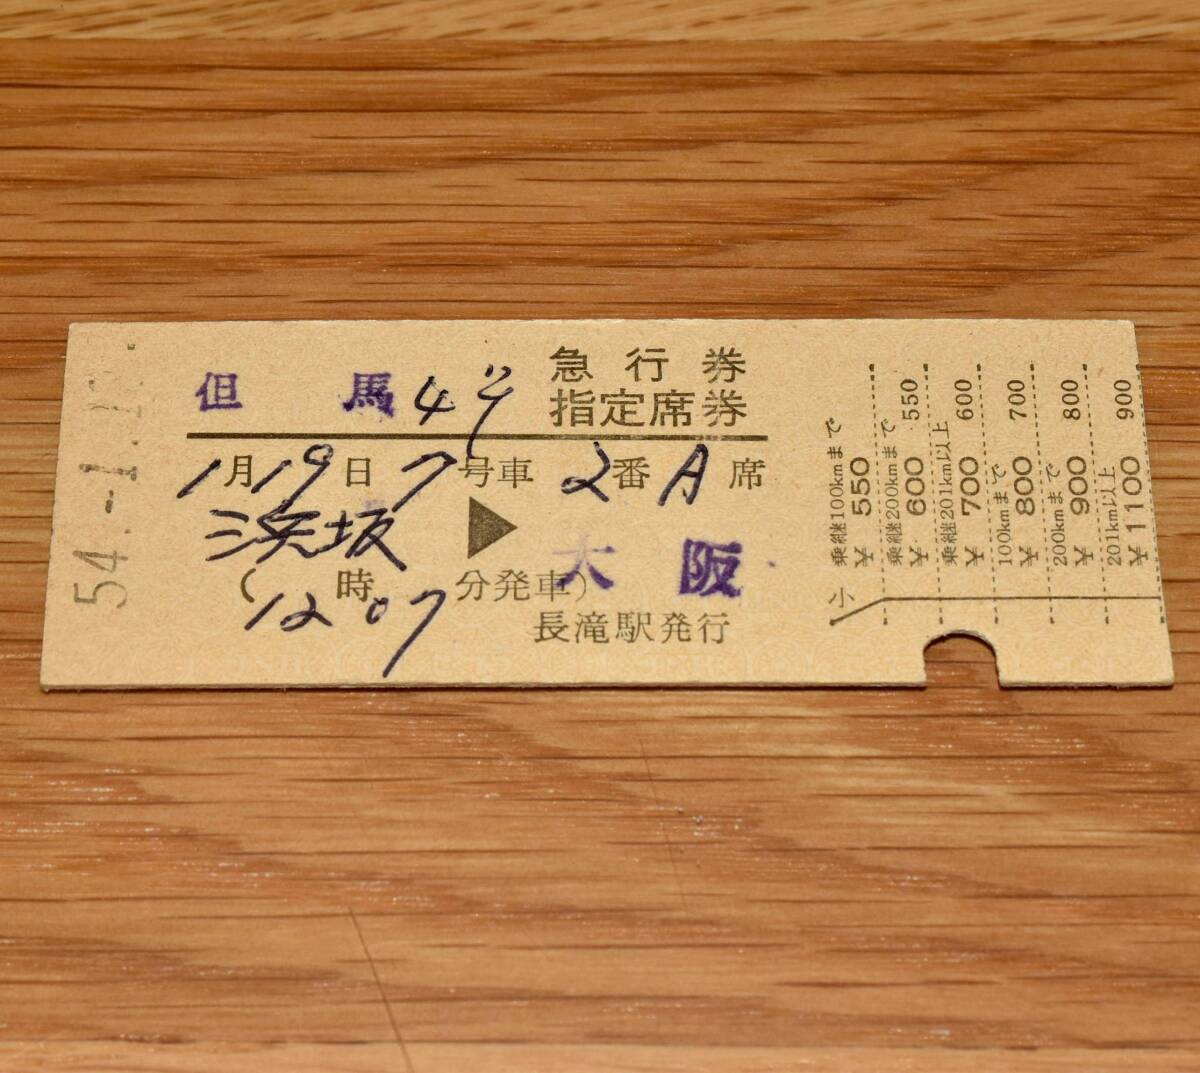 54.-1.-1
但馬4号 急行券
指定席券
1月19日7号車2番A席
浜坂▶大阪
(12時07分発車)
長滝駅発行
小
乗継100kmまで ¥550
乗継200kmまで ¥600 550
乗継201km以上 ¥700 600
100kmまで ¥800 700
200kmまで ¥900 800
201km以上 ¥1100 900